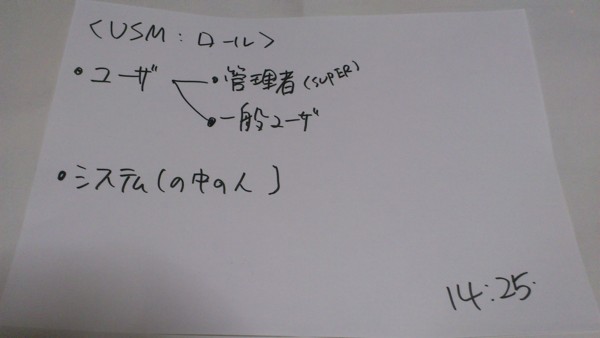 <USM:ロール>
・ユーザ ・管理者(SUPER)
・一般ユーザ
・システム(の中の人)
14:25.